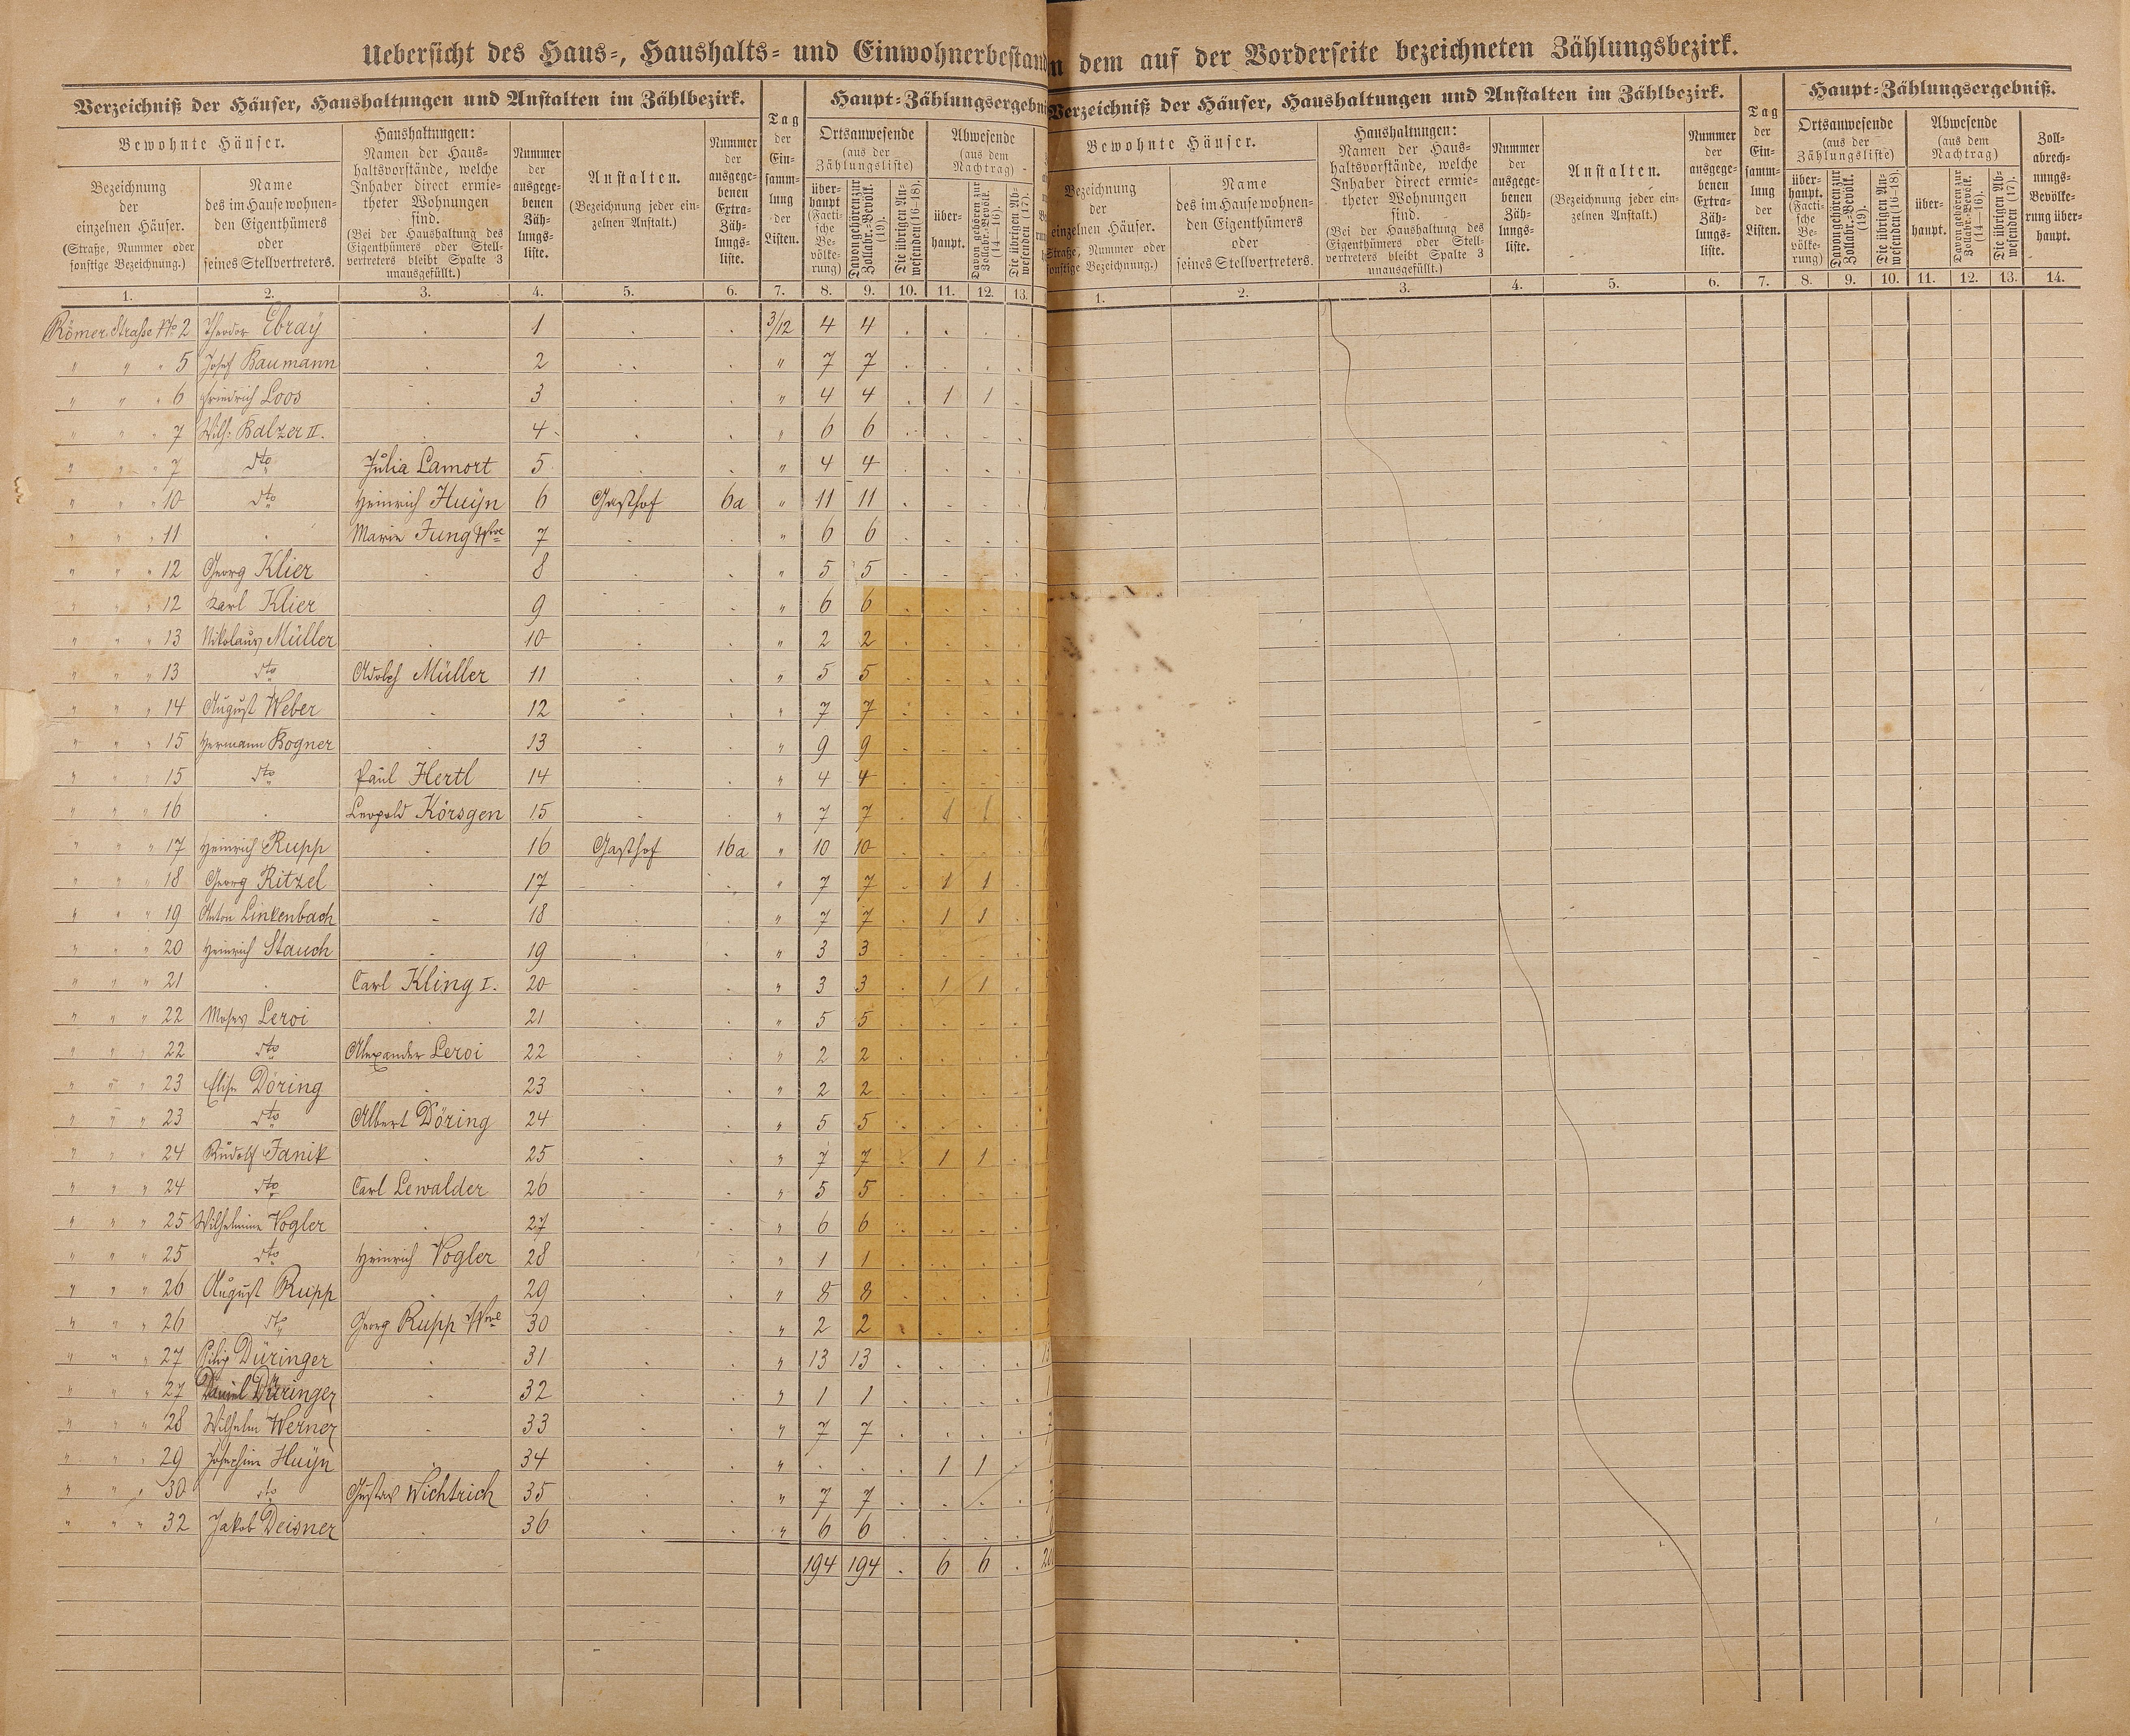 Uebersicht des Haus-, Haushalts- und Einwohnerbestand
Verzeichniß der Häuser, Haushaltungen und Anstalten im Zählbezirk.
Tag der Einsammlung der Listen.
Haupt-Zählungsergebni
Bewohnte Häuser.
Haushaltungen: Namen der Haushaltsvorstände, welche Inhaber direct ermietheter Wohnungen sind. (Bei der Haushaltung des Eigenthümers oder Stellvertreters bleibt Spalte 3 unausgefüllt.)
Nummer der ausgegebenen Zählungsliste.
Anstalten. (Bezeichnung jeder einzelnen Anstalt.)
Nummer der ausgegebenen Extra-Zählungsliste.
Ortsanwesende (aus der Zählungsliste)
Abwesende (aus dem Nachtrag)
Bezeichnung der einzelnen Häuser. (Straße, Nummer oder sonstige Bezeichnung.)
Name des im Hause wohnenden Eigenthümers oder seines Stellvertreters.
überhaupt (Factische Bevölkerung)
Davon gehören zur Zollabr.-Bevölk. (19).
Die übrigen Anwesenden (16–18).
überhaupt.
Davon gehören zur Zollabr.-Bevölk. (14–16).
Die übrigen Abwesenden (17).
1. 2. 3. 4. 5. 6. 7. 8. 9. 10. 11. 12. 13.
Römer Straße No 2 Theodor Ebray . 1 . . 3/12 4 4 . . . .
" " " 5 Josef Baumann . 2 . . " 7 7 . . . .
" " " 6 Friedrich Loos . 3 . . " 4 4 . 1 1 .
" " " 7 Wilh. Balzer II. . 4 . . " 6 6 . . . .
" " " 7 dto Julia Lamort 5 . . " 4 4 . . . .
" " " 10 dto Heinrich Huyn 6 Gasthof 6a " 11 11 . . . .
" " " 11 . Marie Jung Wwe 7 . . " 6 6 . . . .
" " " 12 Georg Klier . 8 . . " 5 5 . . . .
" " " 12 Karl Klier . 9 . . " 6 6 . . . .
" " " 13 Nikolaus Müller . 10 . . " 2 2 . . . .
" " " 13 dto Adolph Müller 11 . . " 5 5 . . . .
" " " 14 August Weber . 12 . . " 7 7 . . . .
" " " 15 Hermann Bogner . 13 . . " 9 9 . . . .
" " " 15 dto Paul Hertl 14 . . " 4 4 . . . .
" " " 16 . Leopold Körsgen 15 . . " 7 7 . 1 1 .
" " " 17 Heinrich Rupp . 16 Gasthof 16a " 10 10 . . . .
" " " 18 Georg Ritzel . 17 . . " 7 7 . 1 1 .
" " " 19 Anton Linkenbach . 18 . . " 7 7 . 1 1 .
" " " 20 Heinrich Stauch . 19 . . " 3 3 . . . .
" " " 21 . Carl Kling I. 20 . . " 3 3 . 1 1 .
" " " 22 Moses Leroi . 21 . . " 5 5 . . . .
" " " 22 dto Alexander Leroi 22 . . " 2 2 . . . .
" " " 23 Elise Döring . 23 . . " 2 2 . . . .
" " " 23 dto Albert Döring 24 . . " 5 5 . . . .
" " " 24 Rudolf Janik . 25 . . " 7 7 . 1 1 .
" " " 24 dto Carl Lewalder 26 . . " 5 5 . . . .
" " " 25 Wilhelmine Vogler . 27 . . " 6 6 . . . .
" " " 25 dto Heinrich Vogler 28 . . " 1 1 . . . .
" " " 26 August Rupp . 29 . . " 8 8 . . . .
" " " 26 dto Georg Rupp Wwe 30 . . " 2 2 . . . .
" " " 27 Philip Düringer . 31 . . " 13 13 . . . .
" " " 27 Daniel Düringer . 32 . . " 1 1 . . . .
" " " 28 Wilhelm Werner . 33 . . " 7 7 . . . .
" " " 29 Josephine Huyn . 34 . . " . . . 1 1 .
" " " 30 dto Gustav Wichtrich 35 . . " 7 7 . . . .
" " " 32 Jakob Deisner . 36 . . " 6 6 . . . .
194 194 . 6 6 .
n dem auf der Vorderseite bezeichneten Zählungsbezirk.
Verzeichniß der Häuser, Haushaltungen und Anstalten im Zählbezirk.
Tag der Einsammlung der Listen.
Haupt-Zählungsergebniß.
Bewohnte Häuser.
Haushaltungen: Namen der Haushaltsvorstände, welche Inhaber direct ermietheter Wohnungen sind. (Bei der Haushaltung des Eigenthümers oder Stellvertreters bleibt Spalte 3 unausgefüllt.)
Nummer der ausgegebenen Zählungsliste.
Anstalten. (Bezeichnung jeder einzelnen Anstalt.)
Nummer der ausgegebenen Extra-Zählungsliste.
Ortsanwesende (aus der Zählungsliste)
Abwesende (aus dem Nachtrag)
Zollabrechnungs-Bevölkerung überhaupt.
Bezeichnung der einzelnen Häuser. (Straße, Nummer oder sonstige Bezeichnung.)
Name des im Hause wohnenden Eigenthümers oder seines Stellvertreters.
überhaupt. (Factische Bevölkerung)
Davon gehören zur Zollabr.-Bevölk. (19).
Die übrigen Anwesenden (16–18).
überhaupt.
Davon gehören zur Zollabr.-Bevölk. (14–16).
Die übrigen Abwesenden (17).
1. 2. 3. 4. 5. 6. 7. 8. 9. 10. 11. 12. 13. 14.